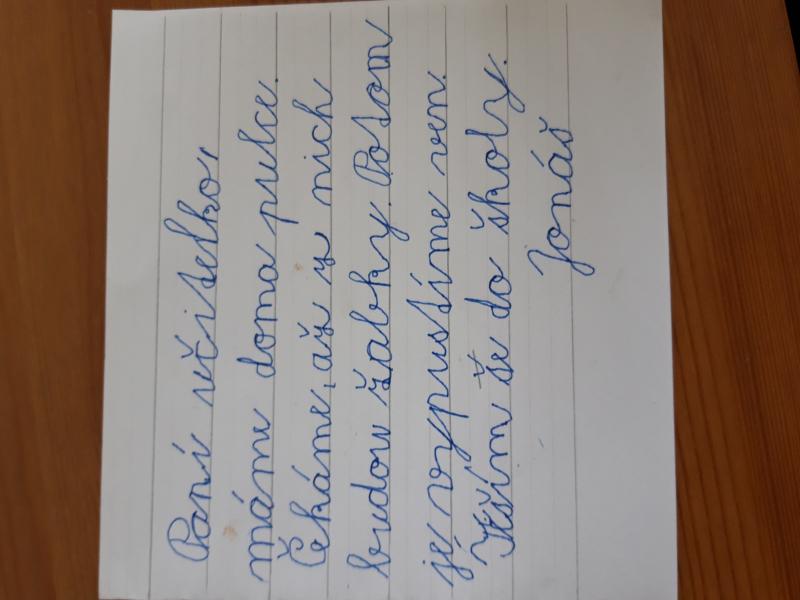 Paní učitelko,
máme doma pulce.
Čekáme, až z nich
budou žabky. Potom
je vypustíme ven.
Těším še do školy.
Jonáš